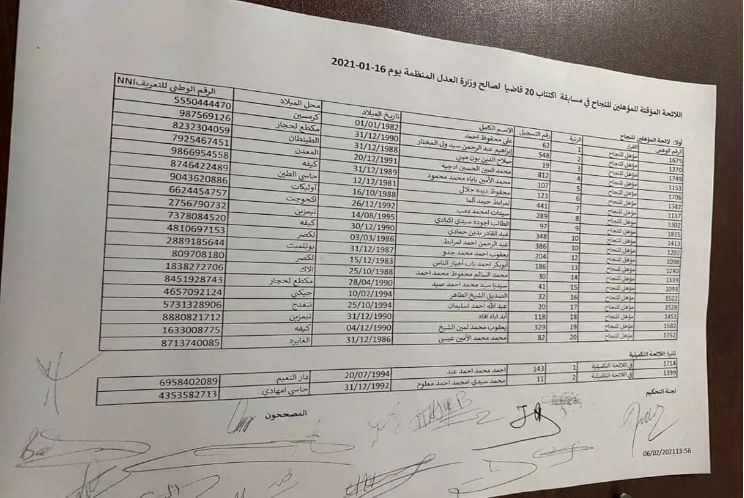 اللائحة المؤقتة للمؤهلين للنجاح في مسابقة اكتتاب 20 قاضيا لصالح وزارة العدل المنظمة يوم 16-01-2021
اولا: لائحة المؤهلين للنجاح
الرقم الوهمي القرار الرتبة رقم التسجيل الاسم الكامل تاريخ الميلاد محل الميلاد الرقم الوطني للتعريف NNI
1675 مؤهل للنجاح 1 62 علي محفوظ احمد 01/01/1982 كرمسين 5550444470
1270 مؤهل للنجاح 2 548 إبراهيم عبد الرحمن سيد ول المختار 31/12/1990 مكطع لحجار 987569126
1749 مؤهل للنجاح 3 19 صلاح الدين بون ميني 31/12/1988 الطينطان 8232304059
1153 مؤهل للنجاح 4 812 محمد العين الحسين ادجيه 20/12/1991 المعدن 7925467451
1706 مؤهل للنجاح 5 107 محمد الأمين باباه محمد محمود 31/12/1989 كيفه 9866954558
1382 مؤهل للنجاح 6 123 محفوظ ديده جلال 12/12/1981 حاسي الطين 8746422489
1137 مؤهل للنجاح 7 441 لمرابط حيمد ألما 16/10/1988 أوليكات 9043620886
1302 مؤهل للنجاح 8 289 سيدات امحمد دهب 26/12/1992 اكجوجت 6624454757
1835 مؤهل للنجاح 9 97 الطالب اجوده سيدي اكبادي 14/08/1995 تيمزين 2756790732
1413 مؤهل للنجاح 10 348 عبد القادر بدين حمادي 30/12/1990 كيفه 7378084520
1202 مؤهل للنجاح 10 386 عبد الرحمن احمد لمرابط 03/03/1986 لكصر 4810697153
1098 مؤهل للنجاح 12 204 يعقوب احمد محمد جدو 31/12/1987 بوتلميت 2889185644
1240 مؤهل للنجاح 13 186 أبوبكر احمد باب أخيار الناس 15/12/1983 لكصر 809708180
1339 مؤهل للنجاح 14 30 محمد السالم محفوظ محمد احمد 25/10/1988 الاك 1838272706
1093 مؤهل للنجاح 15 41 سيديا سيد محمد احمد صيد 28/04/1990 مكطع لحجار 8451928743
1522 مؤهل للنجاح 16 32 الصديق الشيخ الطاهر 10/02/1994 جيكني 4657092124
1528 مؤهل للنجاح 17 20 عبد الله احمد اسليمان 25/10/1994 تنغدج 5731328906
1451 مؤهل للنجاح 18 118 أبد اباد افاد 31/12/1990 تيمزين 8880821712
1682 مؤهل للنجاح 19 329 يعقوب محمد لمين الشيخ 04/12/1990 كيفه 1633008775
1752 مؤهل للنجاح 20 82 محمد محمد الأمين عيسى 31/12/1986 الغايره 8713740085
ثانيا: اللائحة التكميلية
1714 في اللائحة التكميلية 1 143 احمد محمد احمد عبد 20/07/1994 دار النعيم 6958402089
1399 في اللائحة التكميلية 2 11 محمد سيدي امحمد احمد معلوم 31/12/1992 حاسي امهادي 4353582713
لجنة التحكيم
المصححون
06/02/202113:56